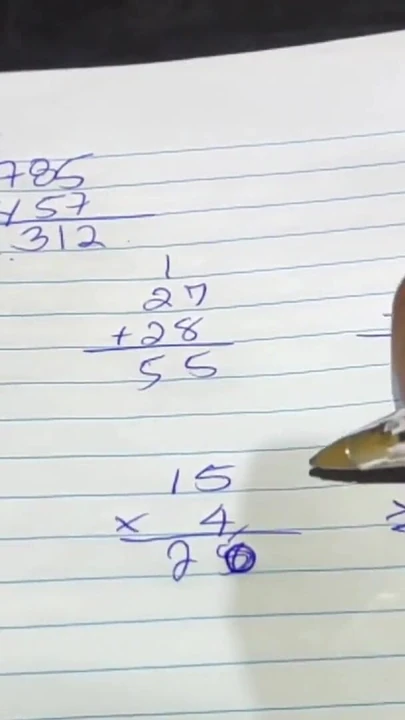 785
57
312
1
27
+28
55
15
× 4
2